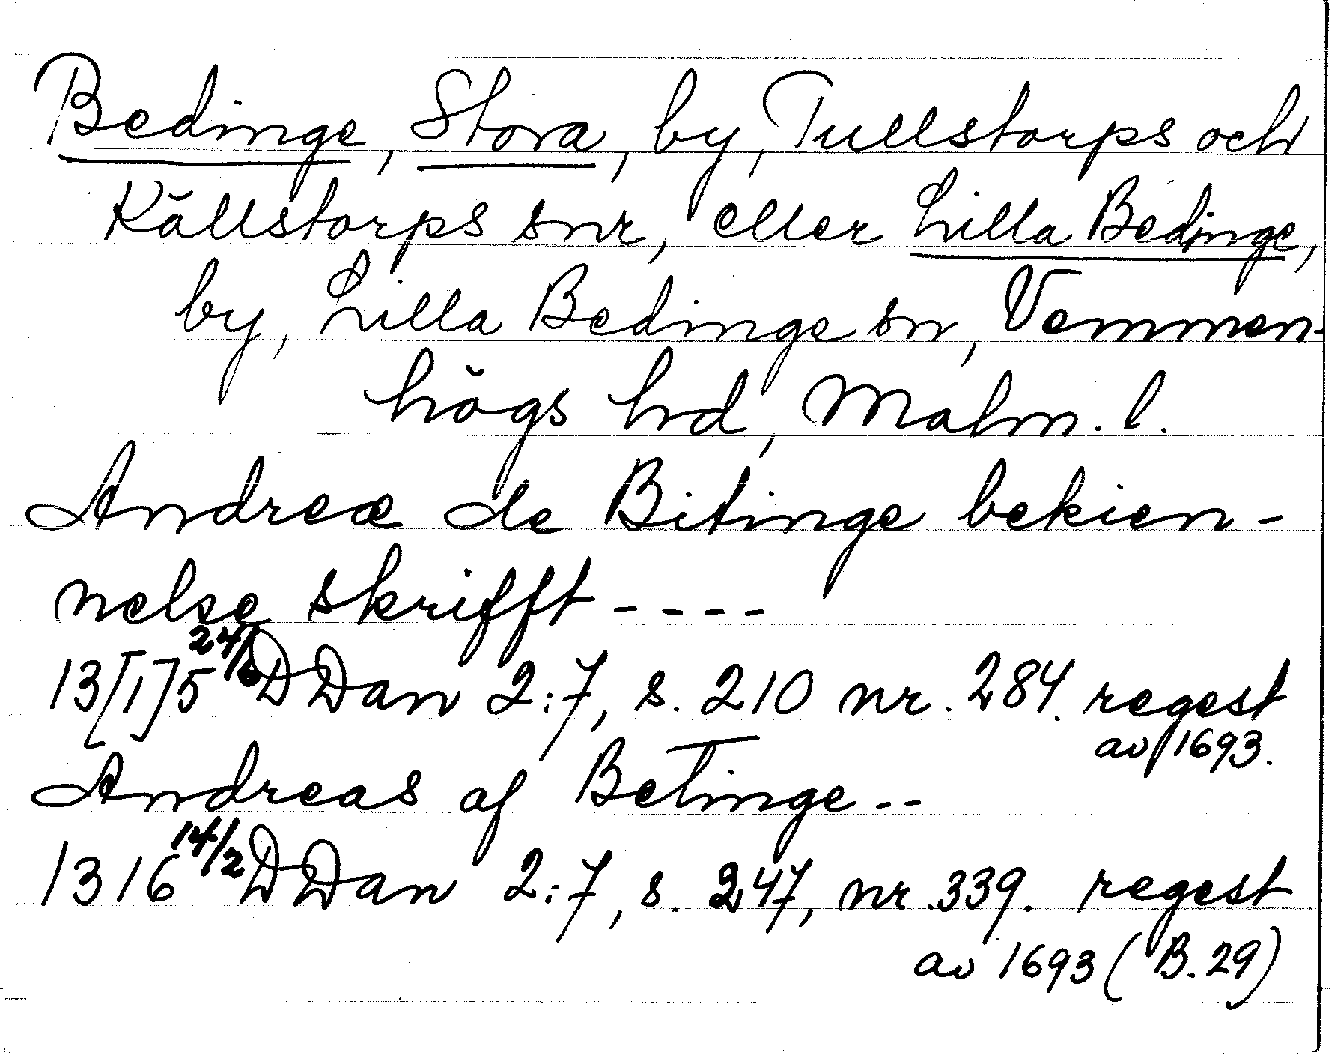 Bedinge, Stora, by, Tullstorps och
Källstorps snr, eller Lilla Bedinge,
by, Lilla Bedinge sn, Vemmen-
högs hrd, Malm. l.
Andreæ de Bitinge bekien-
nelse skrifft ----
13[1]5 24/6 DDan 2:7, s. 210 nr. 284. regest
av 1693.
Andreas af Betinge --
1316 14/2 DDan 2:7, s. 247, nr. 339. regest
av 1693 (B. 29)